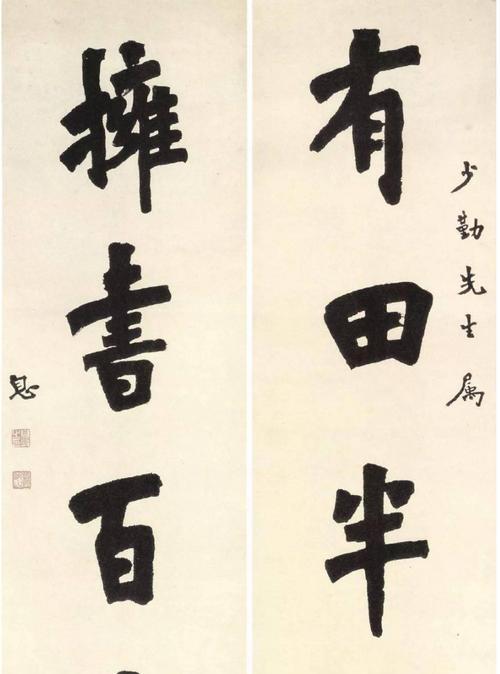 少勤先生属
有田半
擁書百